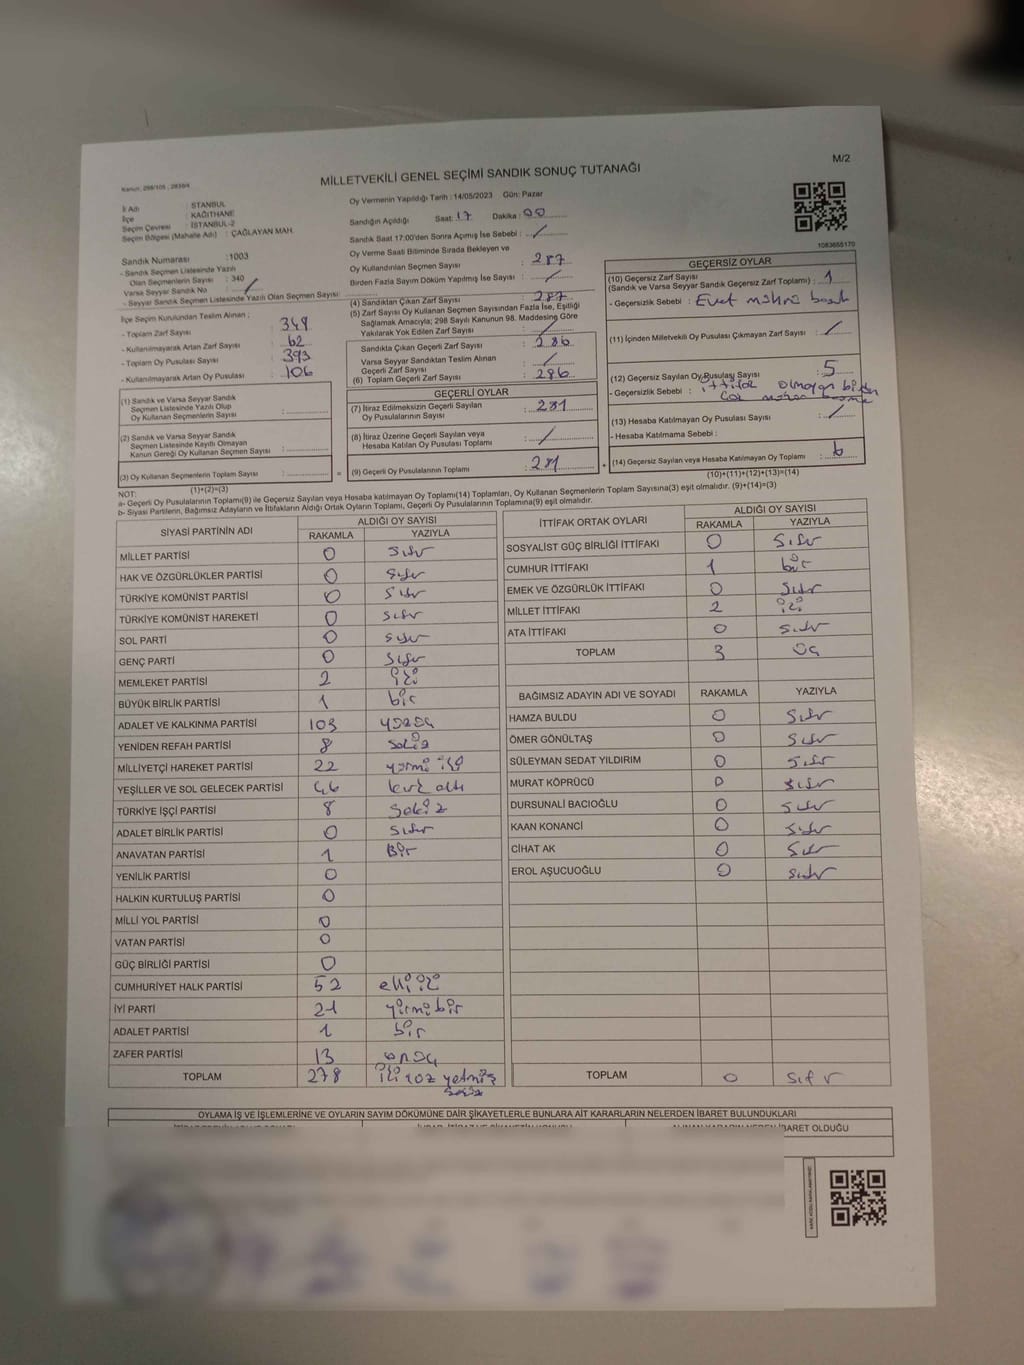 M/2
MİLLETVEKİLİ GENEL SEÇİMİ SANDIK SONUÇ TUTANAĞI
Kanun: 298/105 ; 2839/4
İl Adı : İSTANBUL
İlçe : KAĞITHANE
Seçim Çevresi : İSTANBUL-2
Seçim Bölgesi (Mahalle Adı) : ÇAĞLAYAN MAH.
Sandık Numarası : 1003
- Sandık Seçmen Listesinde Yazılı
Olan Seçmenlerin Sayısı : 340
Varsa Seyyar Sandık No : /
- Seyyar Sandık Seçmen Listesinde Yazılı Olan Seçmen Sayısı:
İlçe Seçim Kurulundan Teslim Alınan ;
- Toplam Zarf Sayısı 349
- Kullanılmayarak Artan Zarf Sayısı 62
- Toplam Oy Pusulası Sayısı 393
- Kullanılmayarak Artan Oy Pusulası 106
(1) Sandık ve Varsa Seyyar Sandık
Seçmen Listesinde Yazılı Olup
Oy Kullanan Seçmenlerin Sayısı :
(2) Sandık ve Varsa Seyyar Sandık
Seçmen Listesinde Kayıtlı Olmayan
Kanun Gereği Oy Kullanan Seçmen Sayısı :
(3) Oy Kullanan Seçmenlerin Toplam Sayısı : =
(1)+(2)=(3)
Oy Vermenin Yapıldığı Tarih : 14/05/2023 Gün: Pazar
Sandığın Açıldığı Saat: 17 Dakika : 00
Sandık Saat 17:00'den Sonra Açımış İse Sebebi : /
Oy Verme Saati Bitiminde Sırada Bekleyen ve
Oy Kullandırılan Seçmen Sayısı : 287
Birden Fazla Sayım Döküm Yapılmış İse Sayısı : /
(4) Sandıktan Çıkan Zarf Sayısı : 287
(5) Zarf Sayısı Oy Kullanan Seçmen Sayısından Fazla İse, Eşitliği
Sağlamak Amacıyla; 298 Sayılı Kanunun 98. Maddesine Göre
Yakılarak Yok Edilen Zarf Sayısı : /
Sandıkta Çıkan Geçerli Zarf Sayısı : 286
Varsa Seyyar Sandıktan Teslim Alınan
Geçerli Zarf Sayısı : /
(6) Toplam Geçerli Zarf Sayısı : 286
GEÇERLİ OYLAR
(7) İtiraz Edilmeksizin Geçerli Sayılan
Oy Pusulalarının Sayısı : 281
(8) İtiraz Üzerine Geçerli Sayılan veya
Hesaba Katılan Oy Pusulası Toplamı : /
(9) Geçerli Oy Pusulalarının Toplamı : 281 +
1083655170
GEÇERSİZ OYLAR
(10) Geçersiz Zarf Sayısı
(Sandık ve Varsa Seyyar Sandık Geçersiz Zarf Toplamı) : 1
- Geçersizlik Sebebi : Evet mührü basılı
(11) İçinden Milletvekili Oy Pusulası Çıkmayan Zarf Sayısı : /
(12) Geçersiz Sayılan Oy Pusulası Sayısı : 5
- Geçersizlik Sebebi : ittifak olmayan birden
(13) Hesaba Katılmayan Oy Pusulası Sayısı : /
- Hesaba Katılmama Sebebi :
(14) Geçersiz Sayılan veya Hesaba Katılmayan Oy Toplamı : 6
(10)+(11)+(12)+(13)=(14)
NOT:
a- Geçerli Oy Pusulalarının Toplamı(9) ile Geçersiz Sayılan veya Hesaba katılmayan Oy Toplamı(14) Toplamları, Oy Kullanan Seçmenlerin Toplam Sayısına(3) eşit olmalıdır. (9)+(14)=(3)
b- Siyasi Partilerin, Bağımsız Adayların ve İttifakların Aldığı Ortak Oyların Toplamı, Geçerli Oy Pusulalarının Toplamına(9) eşit olmalıdır.
SİYASİ PARTİNİN ADI ALDIĞI OY SAYISI
RAKAMLA YAZIYLA
MİLLET PARTİSİ 0 sıfır
HAK VE ÖZGÜRLÜKLER PARTİSİ 0 sıfır
TÜRKİYE KOMÜNİST PARTİSİ 0 sıfır
TÜRKİYE KOMÜNİST HAREKETİ 0 sıfır
SOL PARTİ 0 sıfır
GENÇ PARTİ 0 sıfır
MEMLEKET PARTİSİ 2 iki
BÜYÜK BİRLİK PARTİSİ 1 bir
ADALET VE KALKINMA PARTİSİ 103 yüzüç
YENİDEN REFAH PARTİSİ 8 sekiz
MİLLİYETÇİ HAREKET PARTİSİ 22 yirmi iki
YEŞİLLER VE SOL GELECEK PARTİSİ 46 kırk altı
TÜRKİYE İŞÇİ PARTİSİ 8 sekiz
ADALET BİRLİK PARTİSİ 0 sıfır
ANAVATAN PARTİSİ 1 Bir
YENİLİK PARTİSİ 0
HALKIN KURTULUŞ PARTİSİ 0
MİLLİ YOL PARTİSİ 0
VATAN PARTİSİ 0
GÜÇ BİRLİĞİ PARTİSİ 0
CUMHURİYET HALK PARTİSİ 52 elli iki
İYİ PARTİ 21 yirmi bir
ADALET PARTİSİ 1 bir
ZAFER PARTİSİ 13 onüç
TOPLAM 278 iki yüz yetmiş
sekiz
İTTİFAK ORTAK OYLARI ALDIĞI OY SAYISI
RAKAMLA YAZIYLA
SOSYALİST GÜÇ BİRLİĞİ İTTİFAKI 0 sıfır
CUMHUR İTTİFAKI 1 bir
EMEK VE ÖZGÜRLÜK İTTİFAKI 0 sıfır
MİLLET İTTİFAKI 2 iki
ATA İTTİFAKI 0 sıfır
TOPLAM 3 üç
BAĞIMSIZ ADAYIN ADI VE SOYADI RAKAMLA YAZIYLA
HAMZA BULDU 0 sıfır
ÖMER GÖNÜLTAŞ 0 sıfır
SÜLEYMAN SEDAT YILDIRIM 0 sıfır
MURAT KÖPRÜCÜ 0 sıfır
DURSUNALİ BACIOĞLU 0 sıfır
KAAN KONANCİ 0 sıfır
CİHAT AK 0 sıfır
EROL AŞUCUOĞLU 0 sıfır
TOPLAM 0 sıfır
OYLAMA İŞ VE İŞLEMLERİNE VE OYLARIN SAYIM DÖKÜMÜNE DAİR ŞİKAYETLERLE BUNLARA AİT KARARLARIN NELERDEN İBARET BULUNDUKLARI
İBARET OLDUĞU